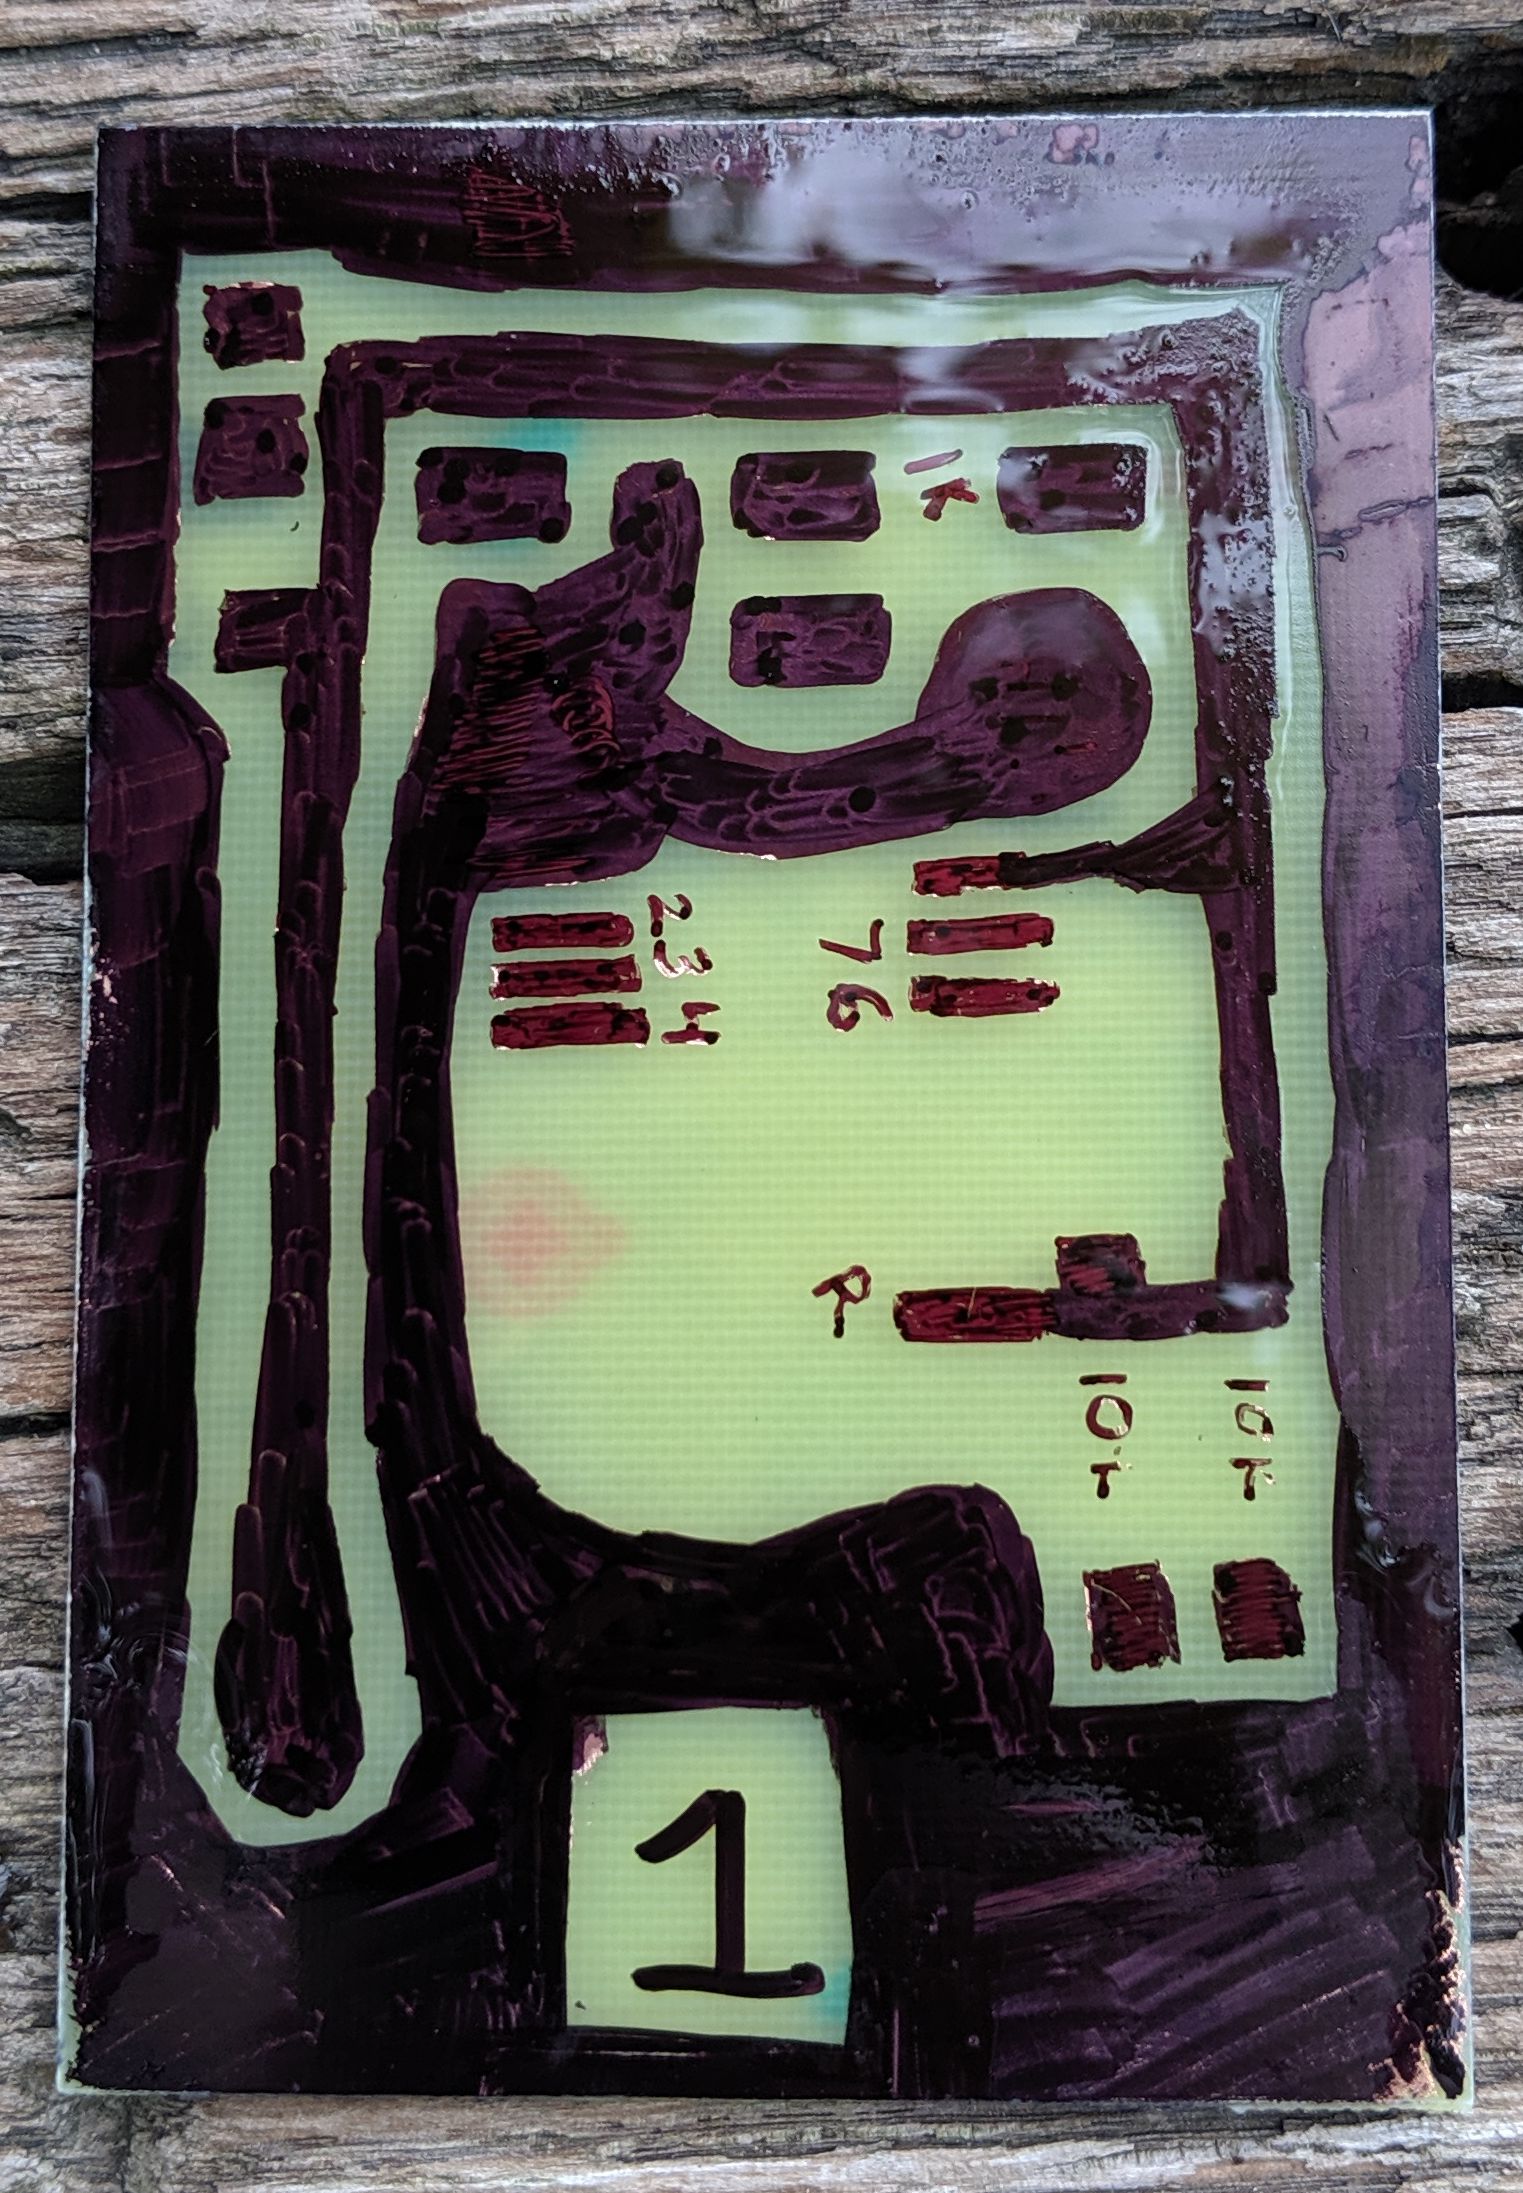 1K
2 3 4
7 6
R
10K
10K
1